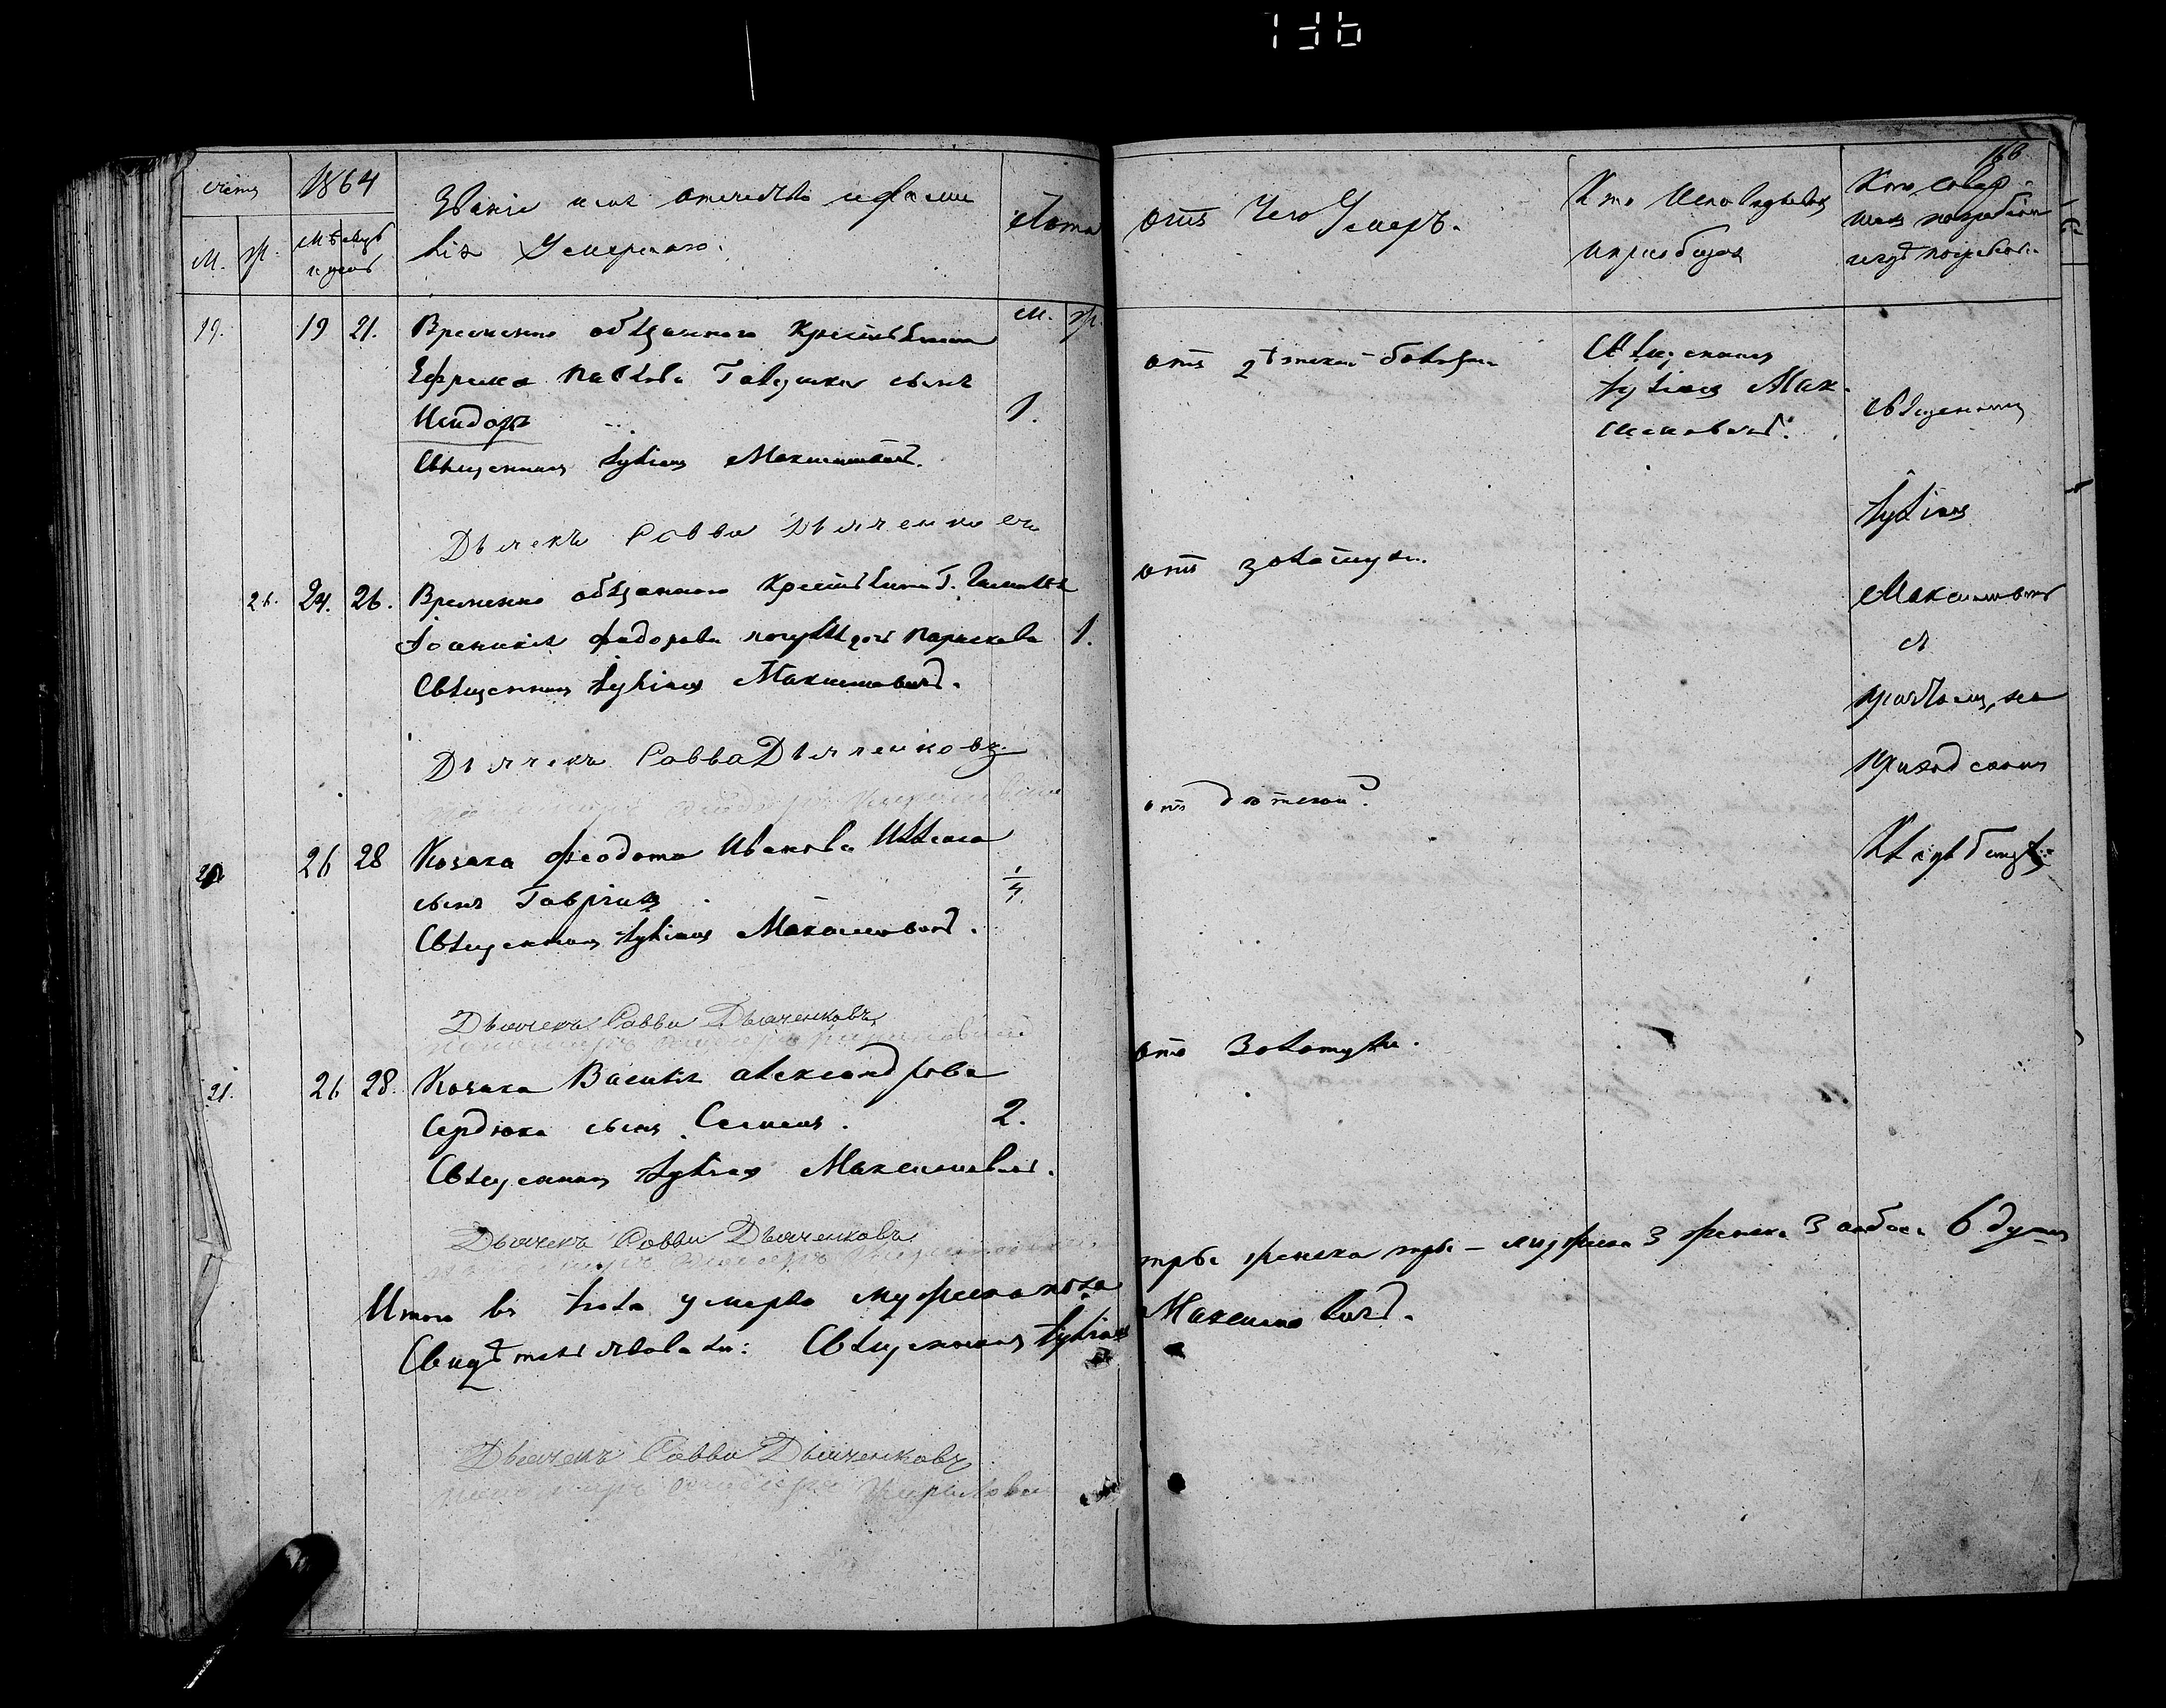 136
160
счетъ
1864
Званіе имя отечество и фами
лія Умершаго.
Лета
отъ Чего Умеръ.
Кто Исповедывалъ
и пріобщал
Кто совер-
шал погребеніе
и где погребены
М.
Ж.
Месяцъ
и день
М. Ж.
19. 19 21. Временно обязанного крестьянина
Ефрема Павлова сынъ
Исидоръ 1.
Священникъ Іуліанъ Максимовичъ.
Дьячекъ Савва Дьяченковъ
отъ детской болезни
Священникъ
Іуліанъ Мак-
симовичъ.
Священникъ
Іуліанъ
Максимовичъ
на
приходскомъ
кладбищѣ
21. 24. 26. Временно обязанного крестьянина Г.
Іоаникія Федорова дочь Параскева 1.
Священникъ Іуліанъ Максимовичъ.
Дьячекъ Савва Дьяченковъ
отъ золотухи.
20 26 28 Козака Феодота Иванова
сынъ Гавріилъ 1/4
Священникъ Іуліанъ Максимовичъ.
Дьячекъ Савва Дьяченковъ
пономарь
отъ детской
21. 26 28. Козака Василія Александрова
Сердюка сынъ Семенъ. 2.
Священникъ Іуліанъ Максимовичъ.
Дьячекъ Савва Дьяченковъ
пономарь
отъ Золотухи.
Итого въ Іюлѣ умерло мужеска пола
три женска три – мужеска 3 женска 3 обоего 6 душъ
Свидѣтельствовали: Священникъ Іуліанъ Максимовичъ.
Дьячекъ Савва Дьяченковъ
пономарь